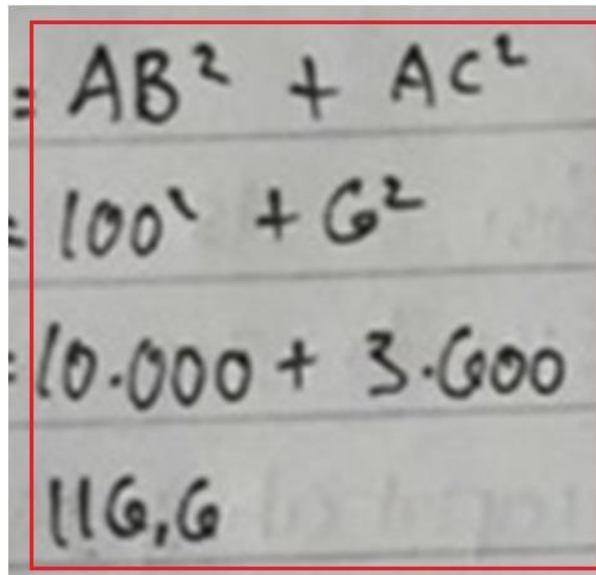 = AB² + AC²
= 100² + 6²
= 10.000 + 3.600
116,6